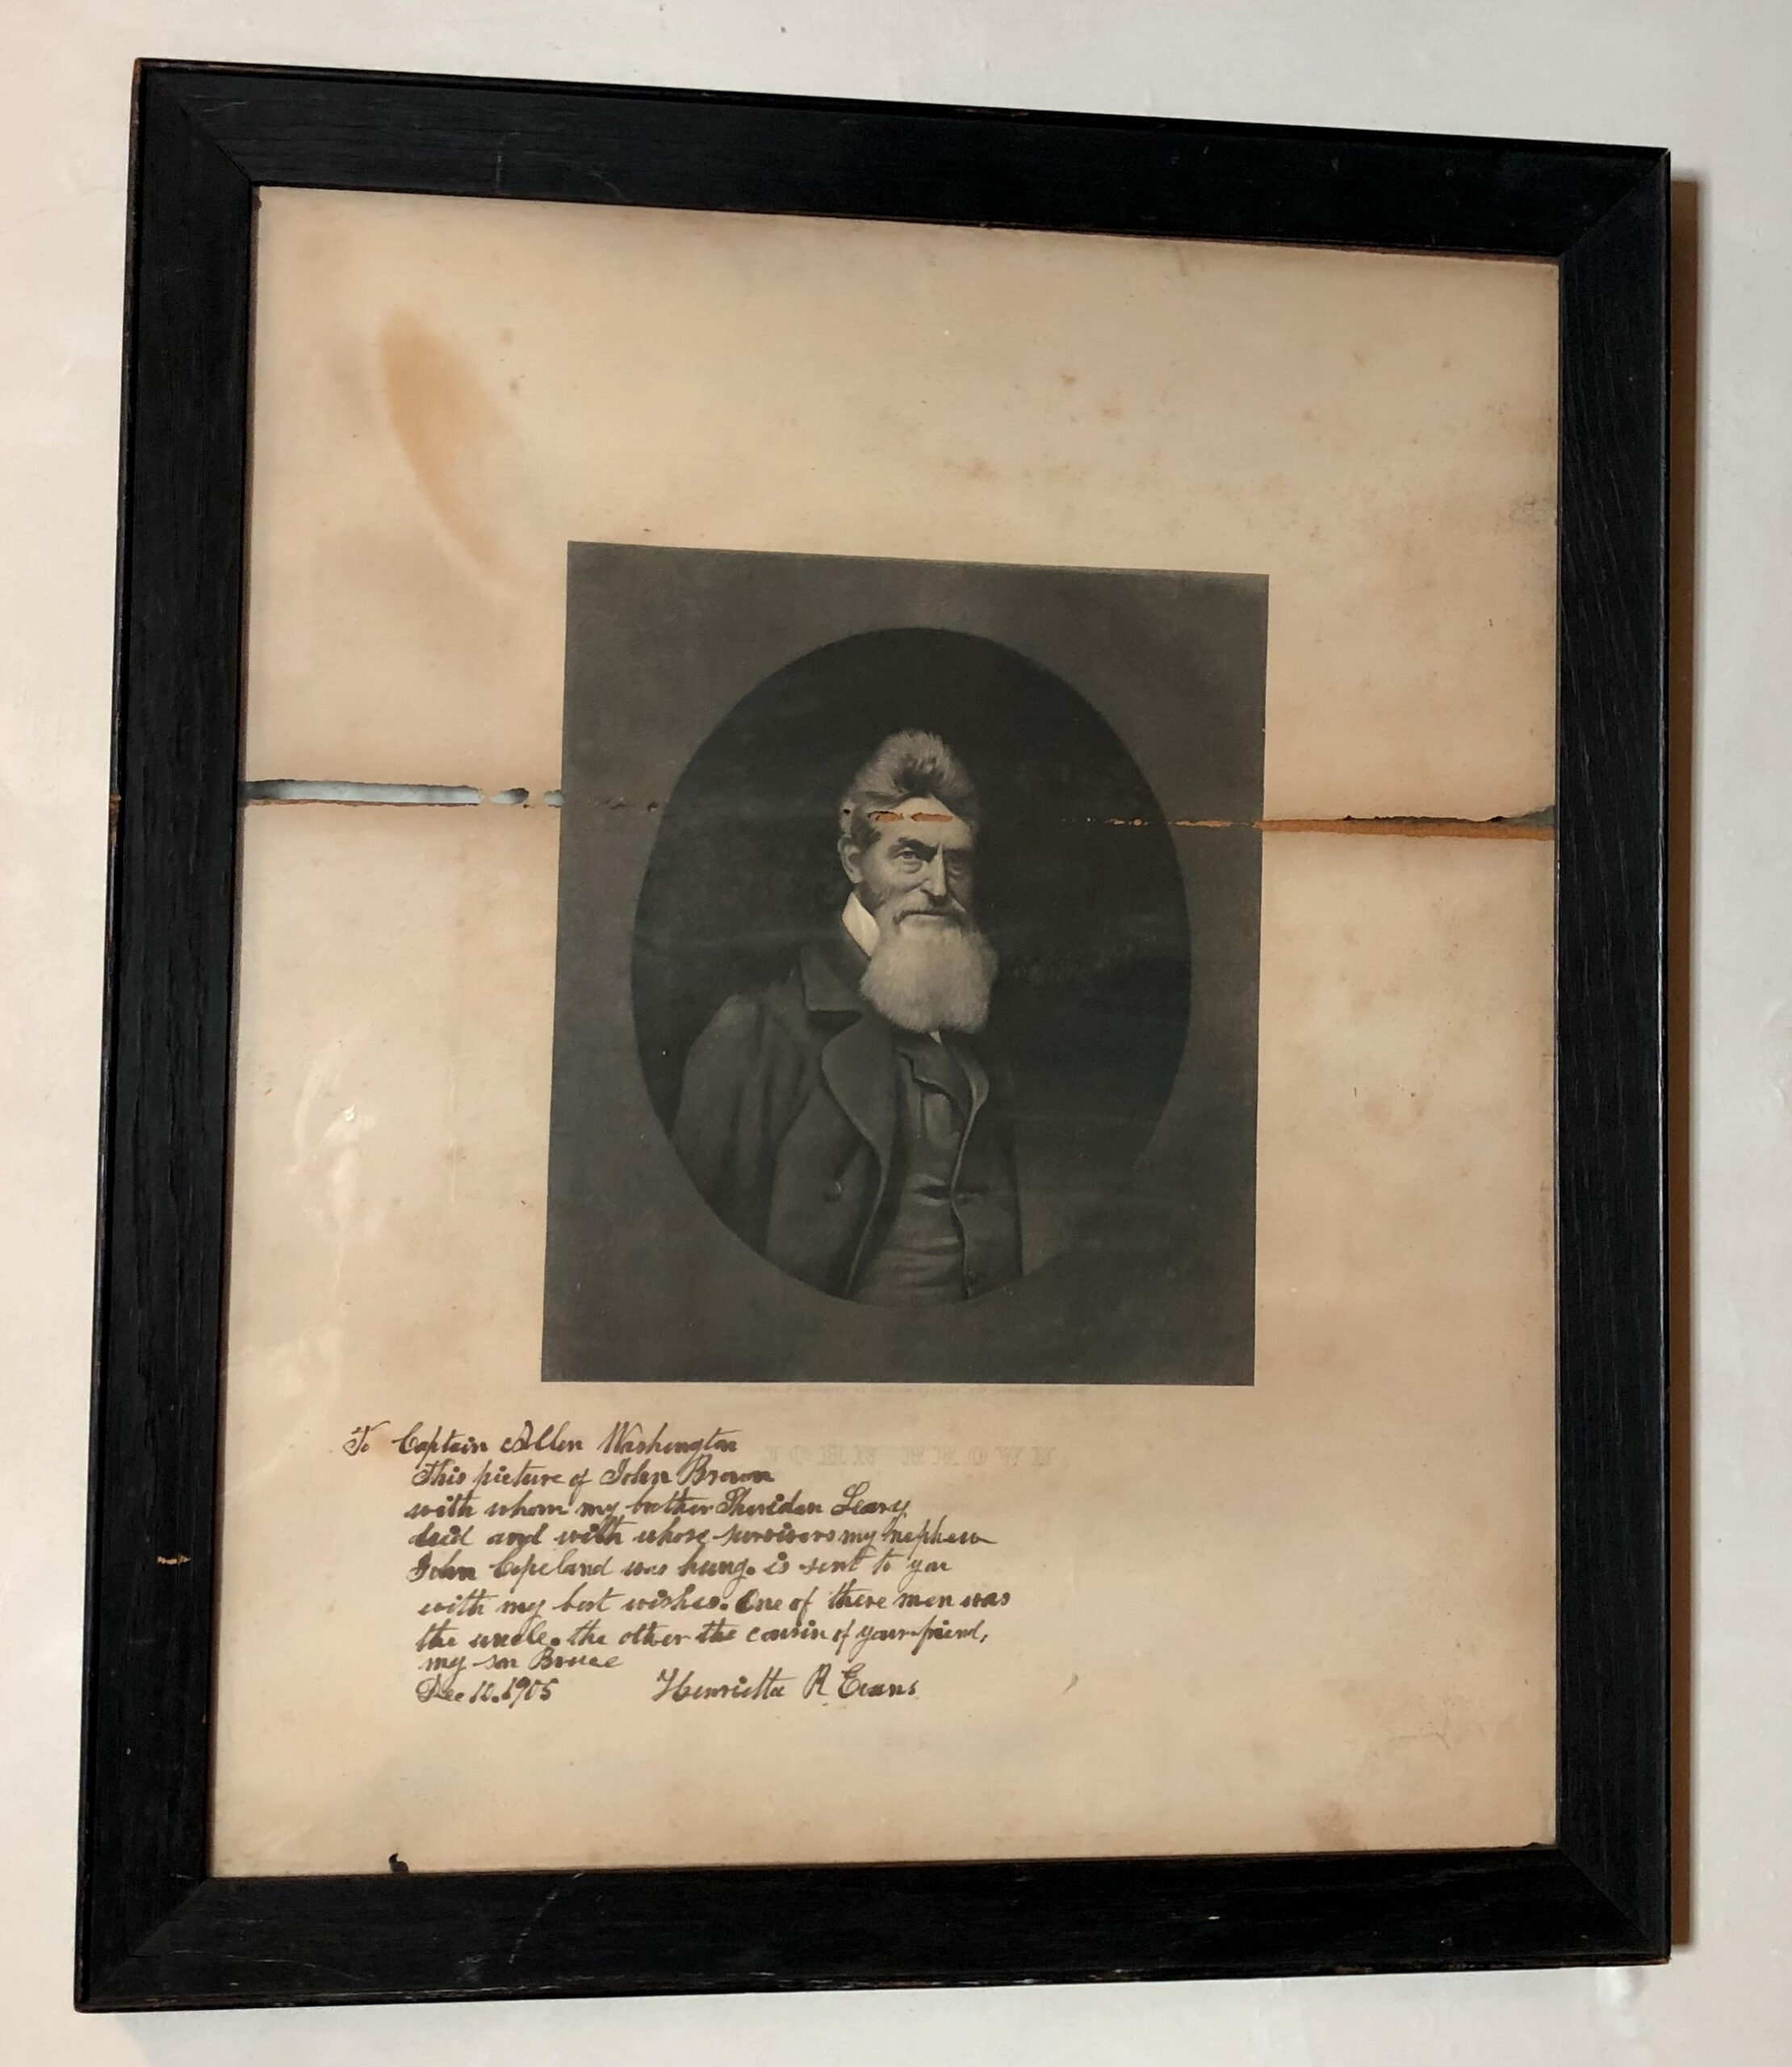 JOHN BROWN
To Captain Allen Washington
This picture of John Brown
with whom my brother Sheridan Leary
died and with whose survivors my nephew
John Copeland was hung. is sent to you
with my best wishes. One of these men was
the uncle. the other the cousin of your friend,
my son Bruce
Dec 10. 1905 Henrietta R. Evans